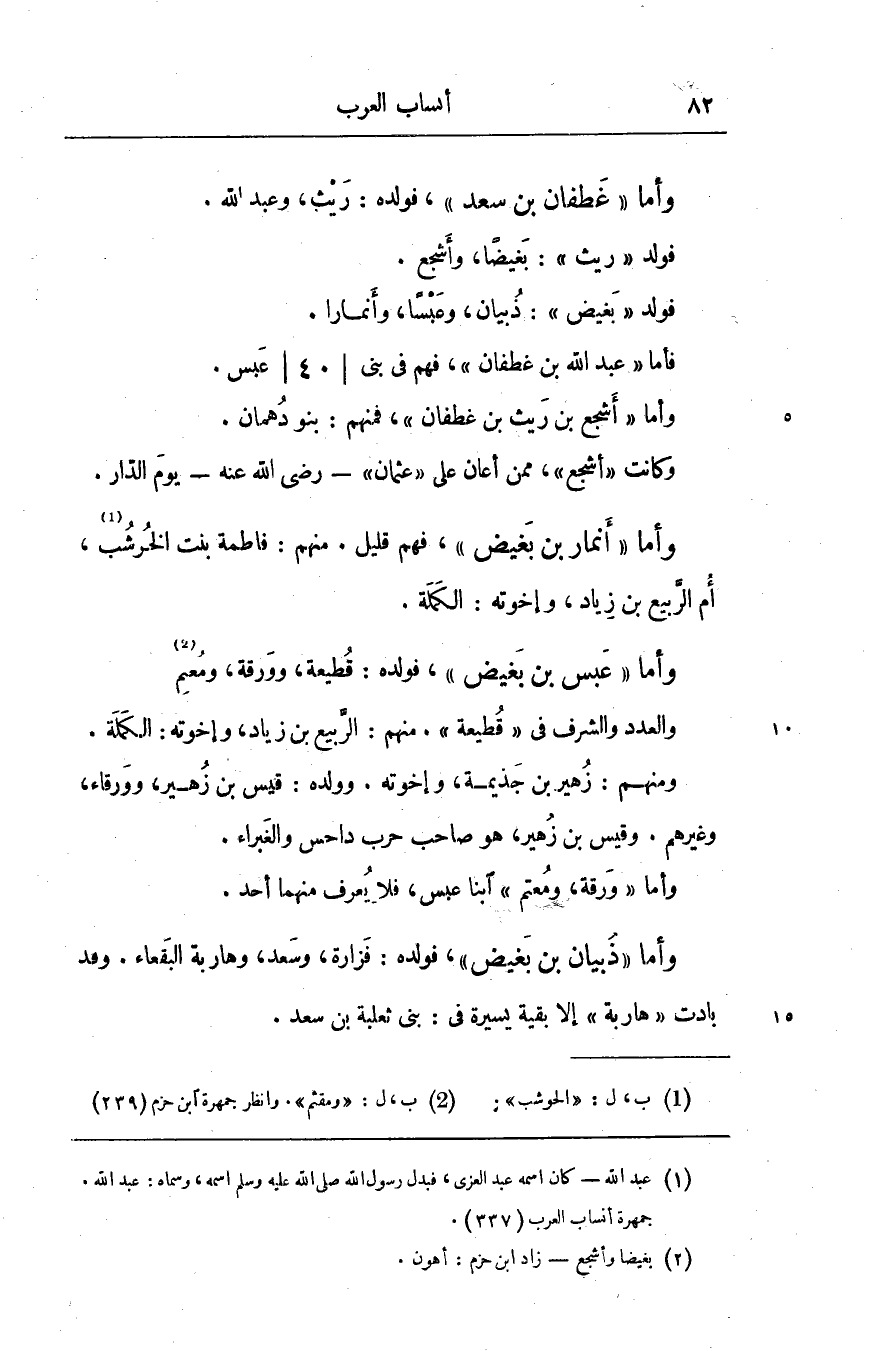 ٨٢ أنساب العرب
وأما « غَطفان بن سعد » ، فولده : رَيْث، وعبد الله .
فولد « ريث » : بَغيضًا، وأَشجع .
فولد « بَغيض » : ذُبيان، وعَبْسًا، وأَنمارا .
فأما « عبد الله بن غطفان »، فهم فى بنى | ٤٠ | عَبس .
٥ وأما « أَشجع بن رَيث بن غطفان »، فمنهم : بنو دُهمان .
وكانت «أشجع»، ممن أعان على «عثمان» – رضى الله عنه – يومَ الدّار .
وأما « أَنمار بن بَغيض » ، فهم قليل . منهم : فاطمة بنت الخُرشُب (1) ،
أُم الرَّبيع بن زِياد ، وإخوته : الكَمَلَة .
وأما « عَبس بن بَغيض » ، فولده : قُطيعة، ووَرقة، ومُعتِم (2)
١٠ والعدد والشرف فى « قُطيعة » . منهم : الرَّبيع بن زياد، وإخوته : الكَمَلَة .
ومنهم : زُهير بن جَذيمة، وإخوته . وولده : قيس بن زُهير، ووَرقاء،
وغيرهم . وقيس بن زُهير، هو صاحب حرب داحس والغَبراء .
وأما « وَرقة، ومُعتم » آبنا عبس، فلا يُعرف منهما أحد .
وأما «ذُبيان بن بَغيض»، فولده : فَزارة، وسَعد، وهاربة البَقعاء . وقد
١٥ بادت « هاربة » إلا بقية يسيرة فى : بنى ثعلبة بن سعد .
(1) ب، ل : «الحوشب»; (2) ب، ل : «ومقثم». وانظر جمهرة آبن حزم (٢٣٩)
(١) عبد الله – كان اسمه عبد العزى، فبدل رسول الله صلى الله عليه وسلم اسمه، وسماه : عبد الله .
جمهرة أنساب العرب (٣٣٧) .
(٢) بغيضا وأشجع – زاد ابن حزم : أهون .